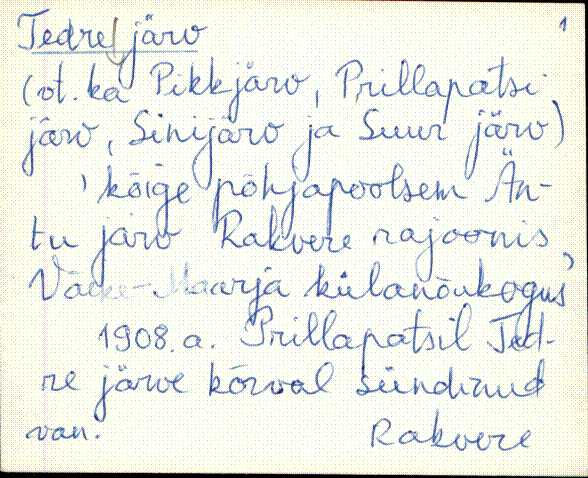 1
Tedre järv
(vt. ka Pikkjärv, Prillapatsi
järv, Sinijärv ja Suur järv)
' kõige põhjapoolsem Än-
tu järv Rakvere rajoonis,
Väike-Maarja külanõukogus
1908. a. Prillapatsil Ted-
re järve kõrval sündinud
van. Rakvere